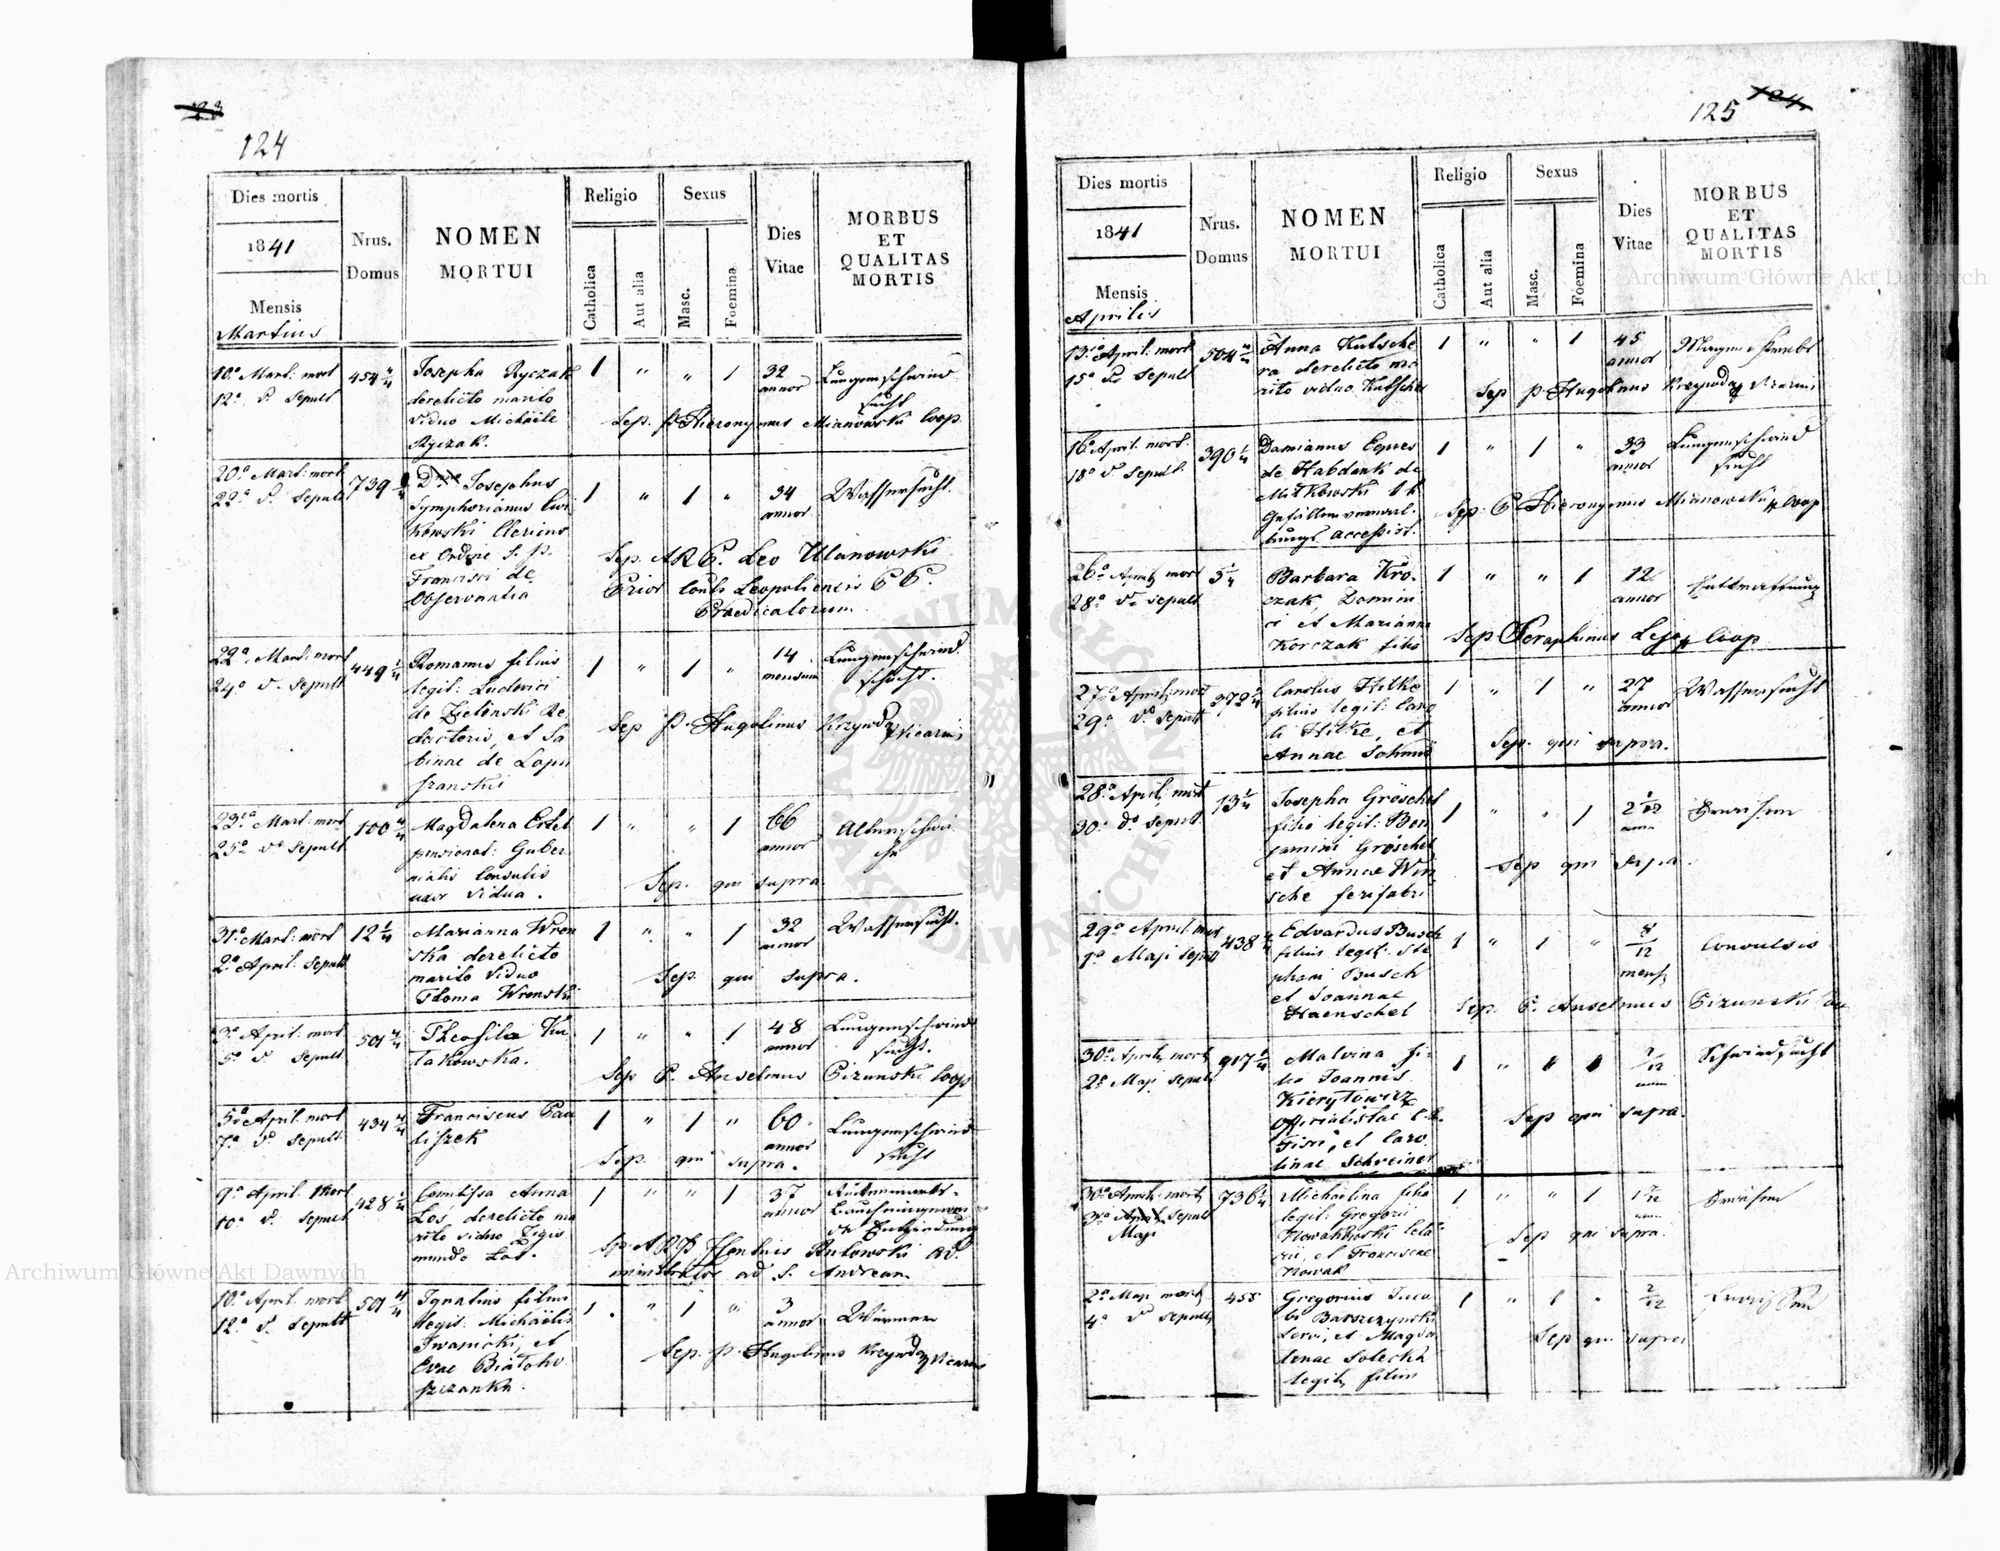 124
Dies mortis
1841
Mensis
Martius
Nrus.
Domus
NOMEN
MORTUI
Religio
Catholica
Aut alia
Sexus
Masc.
Foemina
Dies
Vitae
MORBUS
ET
QUALITAS
MORTIS
10a Mart: mort
12a d. Sepult
454 4/4
Josepha Ryczak
derelicto marito
viduo Michaele
Ryczak.
1 " " 1
32
annor
Lungenschwind
sucht
Sep. P. Hieronymus Mianowski Coop.
20a Mart: mort
22a d. Sepult
739
Josephus
Symphorianus
kowski Clericus
ex Ordine S. P.
Francisci de
Observantia
1 " 1 "
34
annor
Wassersucht.
Sep. A.R.P. Leo Ulanowski
Prior Leopoliensis P P.
Praedicatorum
22a Mart: mort
24a d. Sepult
449
Romanus filius
legit: Ludovici
de Zielonski Re
dactoris, et Sa
binae de Lopu
szanskie
1 " 1 "
14
mensium
Lungenschwind
sucht.
Sep P. Hugolinus Krzywda Vicarius
23a Mart: mort
25a d. Sepult
100 4/4
Magdalena Ertel
pensionat: Guber
nialis Consulis
uxor vidua.
1 " " 1
66
annor
Altersschwä
che
Sep. qui supra
31a Mart: mort
2a April: Sepult
12
Marianna Wron
ska derelicto
marito viduo
Thoma Wronski
1 " " 1
32
annor
Wassersucht.
Sep. qui supra.
3a April: mort
5a d. Sepult
501 4/4
Theofila Ku
lakowska.
1 " " 1
48
annor
Lungenschwind
sucht.
Sep P. Anselmus Pizunski Coop
5a April: mort
7a d. Sepult
434 4/4
Franciscus Pau
liszek
1 " 1 "
60
annor
Lungenschwind
sucht
Sep. qui supra.
9a April: Mort
10a d. Sepult
428
Comitissa Anna
Łoś, derelicto ma
rito viduo Zigis
mundo Łoś.
1 " " 1
37
annor
Entzündung
Sep. A R P Rutowski Ad.
ministrator ad S. Andream
10a April: mort
12a d. Sepult
501 4/4
Ignatius filius
legit: Michaelis
Iwanicki, et
Evae Białobr
szezanka.
1 " 1 "
3
annor
Würmer
Sep. P. Hugolinus Krzywda Vicarius
125
Dies mortis
1841
Mensis
Aprilis
Nrus.
Domus
NOMEN
MORTUI
Religio
Catholica
Aut alia
Sexus
Masc.
Foemina
Dies
Vitae
MORBUS
ET
QUALITAS
MORTIS
13a April: mort
15a d. Sepult
504 4/4
Anna Kutsche
ra derelicto ma
rito viduo Kutschera
1 " " 1
45
annor
Magen
Sep P. Hugolinus Krzywda Vicarius
16a April: mort.
18a d. Sepult.
390
Damianus Eques
de Habdank de
Mitkowski
Gefällenverwal.
tungs Accessist.
1 " 1 "
33
annor
Lungenschwind
sucht
Sep. P. Hieronymus Mianowski Coop
26a April: mort
28a d. Sepult
5
Barbara Kro.
czak, Domini
ci et Marianna
Korczak filia
1 " " 1
12
annor
Entkräftung
Sep Seraphinus Coop
27a April: mort
29a d. Sepult
372
Carolus Hilke
filius legit: Caro
li Hilke, et
Annae
1 " 1 "
27
annor
Wassersucht
Sep. qui supra.
28a April: mort
30a d. Sepult
13
Josepha Gröschel
filia legit: Ben
jamini Gröschel
et Annae Win
sche ferifabri
1 " " 1
Sep qui supra.
29a April: mort
1a Maji Sepult
438
Edvardus Busch
filius legit: Ste
phani Busch
et Joannae
Haenschel
1 " 1 "
8/12
mens
Convulsis
Sep. P. Anselmus Pizunski
30a April: mort
2a Maji Sepult
917
Malvina fi
lia Joannis
Kierytowicz
Officialistae
Fisci, et Caro
linae Schreiner
1 " " 1
Schwindsucht
Sep qui supra.
30a April: mort
3a Sepult
Maji
736
Michaelina filia
legit: Gregorii
et Franciscae
Nowak
1 " " 1
Sep qui supra.
2a Maji mort
4a d. Sepult
455
Gregorius Jaco
bi Barszczynski
servi, et Magda
lenae Solecka
legit: filius
1 " 1 "
2/12
Sep qui supra
Archiwum Główne Akt Dawnych
Archiwum Główne Akt Dawnych
ARCHIWUM GŁÓWNE AKT DAWNYCH